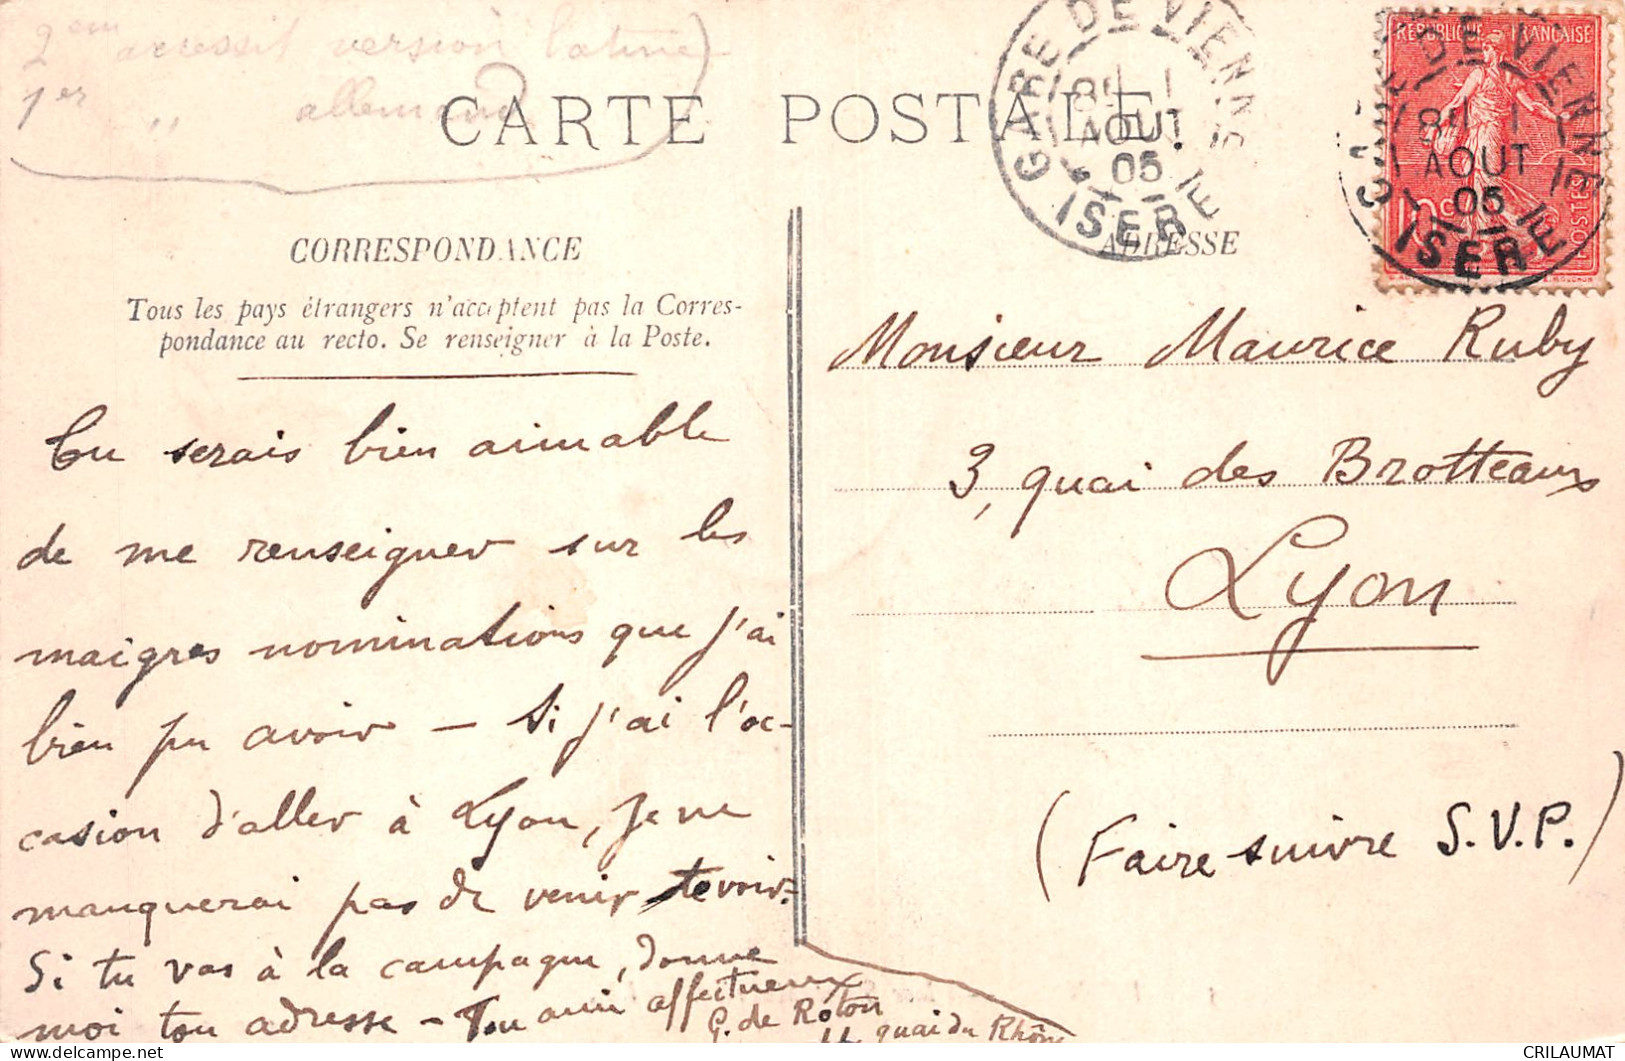 2em accessit version latine
1er " allemand
CARTE POSTALE
GARE DE VIENNE
AOUT
05
ISERE
RÉPUBLIQUE FRANÇAISE
10c
POSTES
GARE DE VIENNE
AOUT
05
ISERE
CORRESPONDANCE
Tous les pays étrangers n'acceptent pas la Corres-
pondance au recto. Se renseigner à la Poste.
Tu serais bien aimable
de me renseigner sur les
maigres nominations que j'ai
bien pu avoir – Si j'ai l'oc-
casion d'aller à Lyon, je ne
manquerai pas de venir te voir.
Si tu vas à la campagne, donne
moi ton adresse – Ton ami affectueux
G. de Roton
quai du Rhône
ADRESSE
Monsieur Maurice Ruby
3, quai des Brotteaux
Lyon
(Faire suivre S.V.P.)
CRILAUMAT